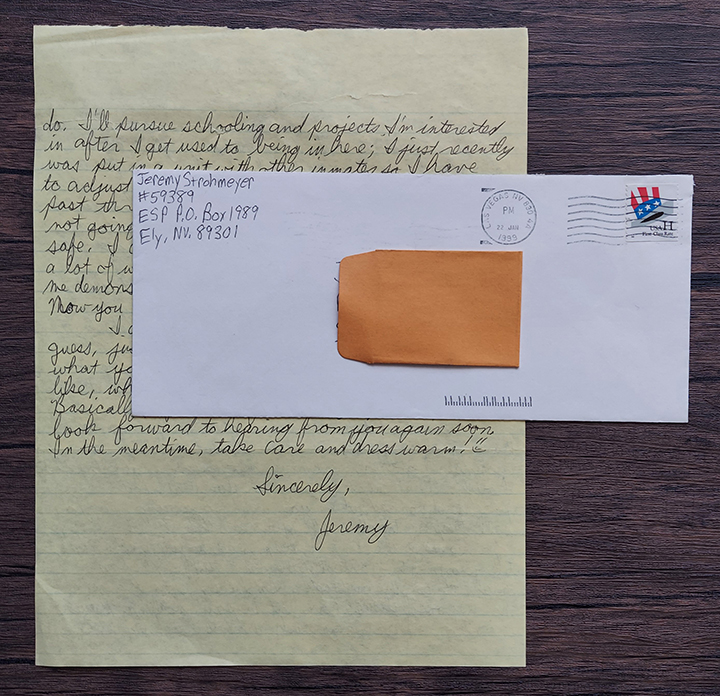 do. I'll pursue schooling and projects I'm interested
in after I get used to being in here; I just recently
was put in a unit with other inmates so I have
to adjust
past
not going
safe. I
a lot of
me
Now you
I
guess,
what
like,
Basically
look forward to hearing from you again soon
In the meantime, take care and dress warm!
Sincerely,
Jeremy
Jeremy Strohmeyer
#59389
ESP P.O. Box 1989
Ely, NV. 89301
LAS VEGAS NV 890
PM
22 JAN
1999
USA H
First-Class Rate